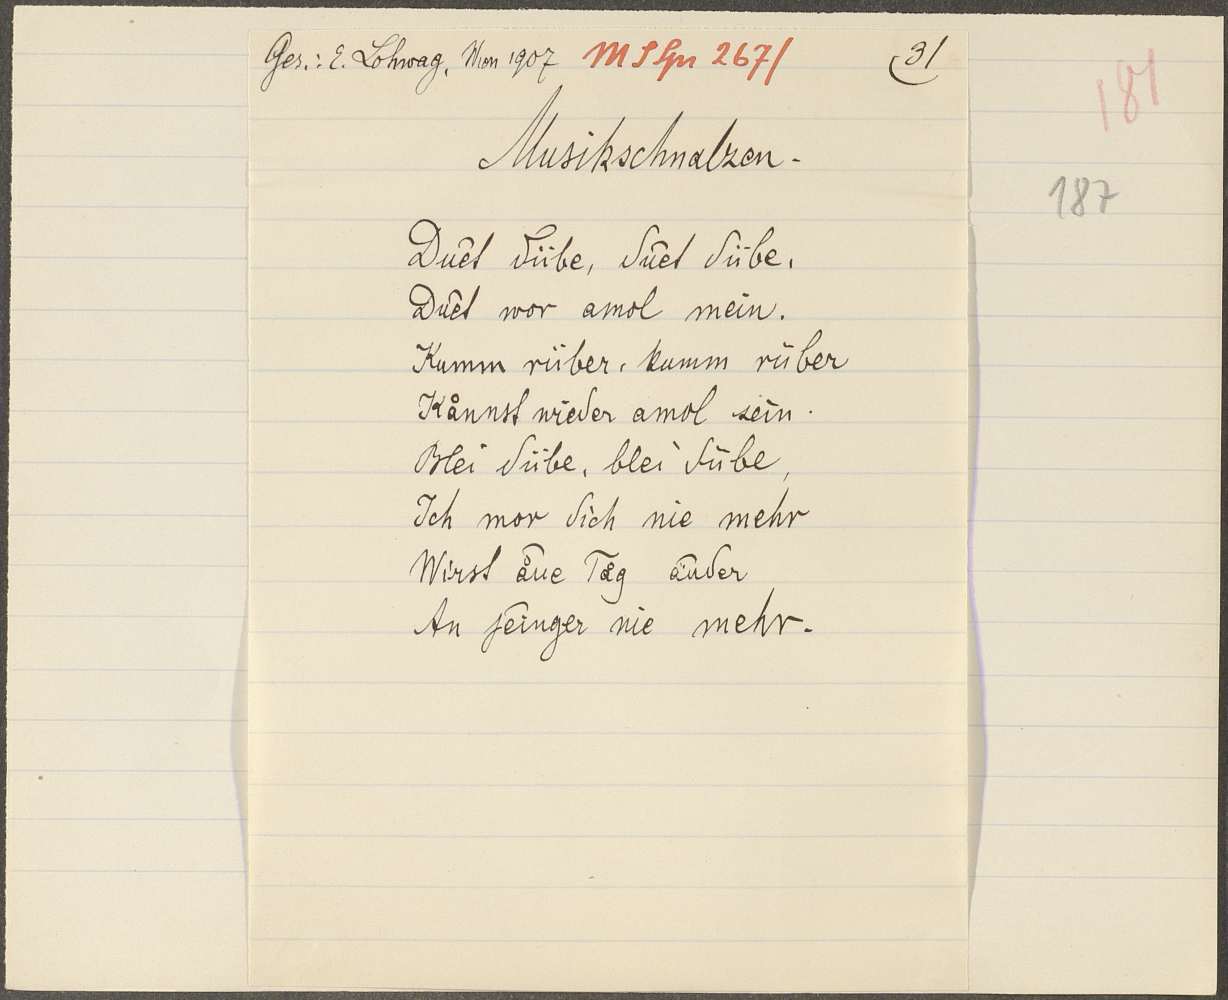 Ges.: E. Lohwag, Wien 1907 M S Spr 267/ 31
181
187
Musikschnalzen -
Duêt dübe, duêt dübe,
Duêt wor amol mein.
Kumm rüber, kumm rüber
Kånnst wieder amol sein.
Blei dübe, blei dübe,
Ich mor dich nie mehr
Wirst åne Tåg änder
An jeinger nie mehr.